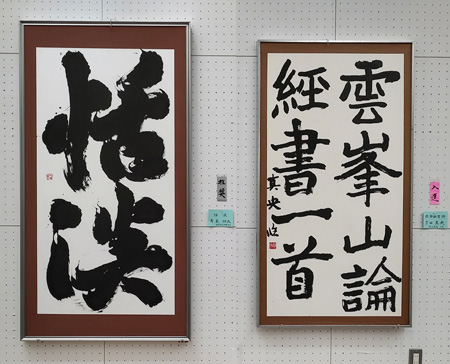 恬淡
雲峯山論
經書一首
真央臨
入選